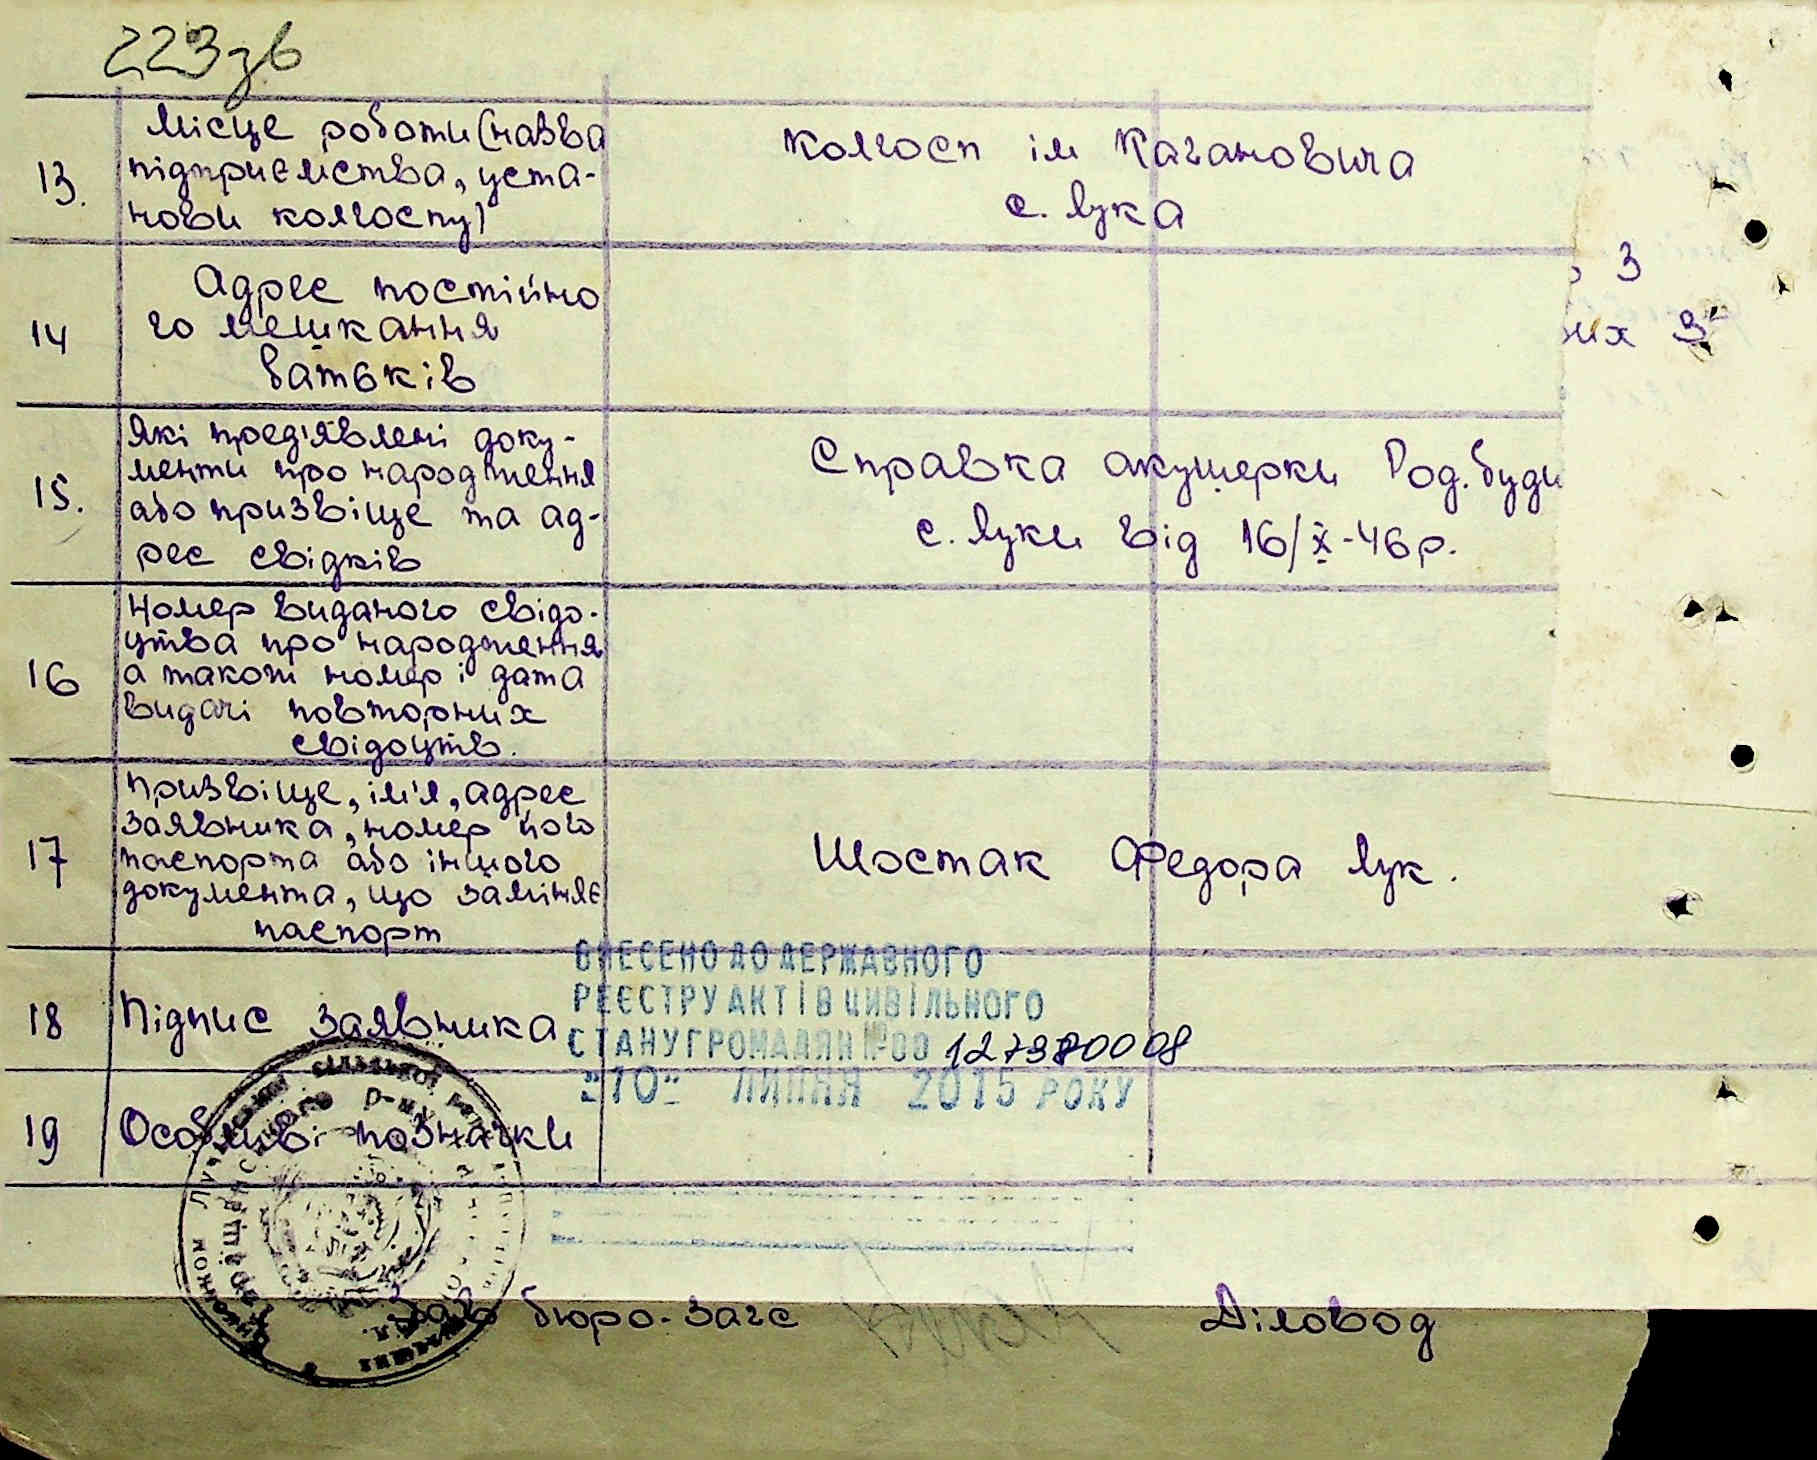 223зв
13. Місце роботи (назва
підприємства, уста-
нови колгоспу)
колгосп ім Кагановича
с. Лука
14 Адрес постійно
го мешкання
батьків
3
них 3
15. Які пред'явлені доку-
менти про народження
або призвіще та ад-
рес свідків
Справка акушерки Род. буди
с. Луки від 16/X-46р.
16 Номер виданого свідо-
цтва про народження
а також номер і дата
видачі повторних
свідоцтв.
17 Призвіще, ім'я, адрес
заявника, номер його
паспорта або іншого
документа, що заміняє
паспорт
Шостак Федора Лук.
ВНЕСЕНО ДО ДЕРЖАВНОГО
РЕЄСТРУ АКТІВ ЦИВІЛЬНОГО
СТАНУ ГРОМАДЯН №00 127380008
"10" ЛИПНЯ 2015 РОКУ
18 Підпис заявника
19 Особливі позначки
сільської ради
р-ну
Зав бюро-загс
Діловод